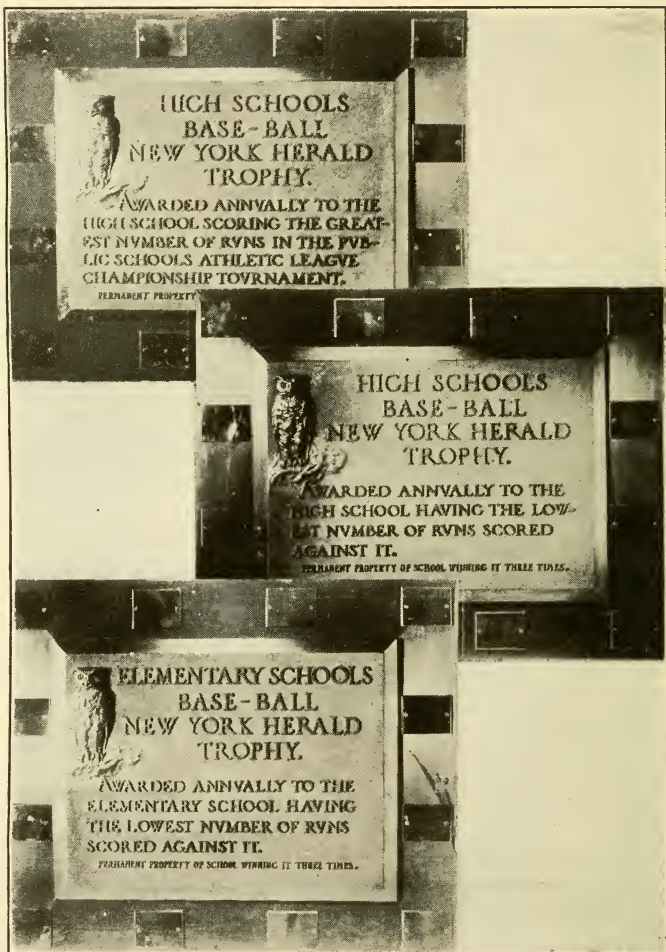 HIGH SCHOOLS
BASE-BALL
NEW YORK HERALD
TROPHY.
AWARDED ANNVALLY TO THE
HIGH SCHOOL SCORING THE GREAT-
EST NVMBER OF RVNS IN THE PVB-
LIC SCHOOLS ATHLETIC LEAGVE
CHAMPIONSHIP TOVRNAMENT.
PERMANENT PROPERTY
HIGH SCHOOLS
BASE-BALL
NEW YORK HERALD
TROPHY.
AWARDED ANNVALLY TO THE
HIGH SCHOOL HAVING THE LOW-
EST NVMBER OF RVNS SCORED
AGAINST IT.
PERMANENT PROPERTY OF SCHOOL WINNING IT THREE TIMES.
ELEMENTARY SCHOOLS
BASE-BALL
NEW YORK HERALD
TROPHY.
AWARDED ANNVALLY TO THE
ELEMENTARY SCHOOL HAVING
THE LOWEST NVMBER OF RVNS
SCORED AGAINST IT.
PERMANENT PROPERTY OF SCHOOL WINNING IT THREE TIMES.